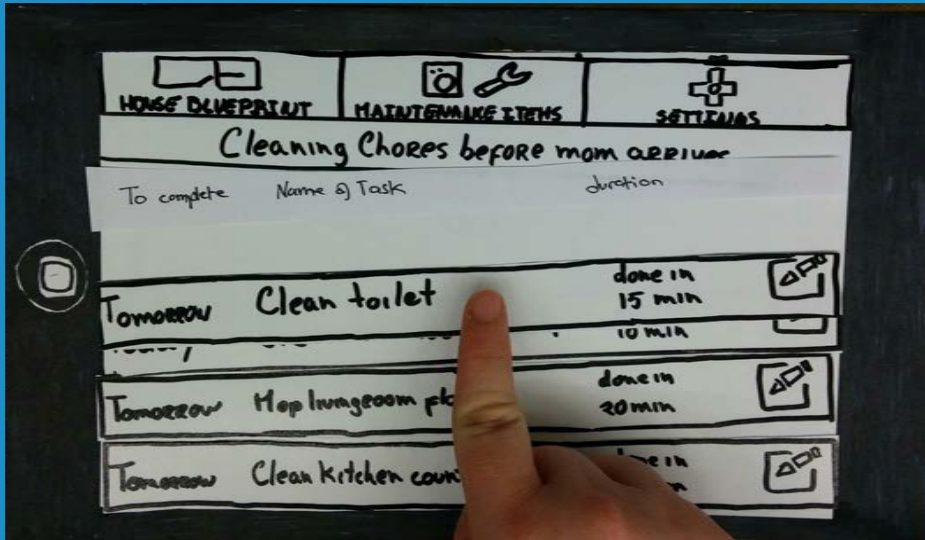 HOUSE BLUEPRINT
MAINTENANCE ITEMS
SETTINGS
Cleaning Chores before mom arrives
To complete Name of Task duration
Tomorrow Clean toilet done in
15 min
Today 10 min
Tomorrow Mop livingroom done in
20min
Tomorrow Clean kitchen